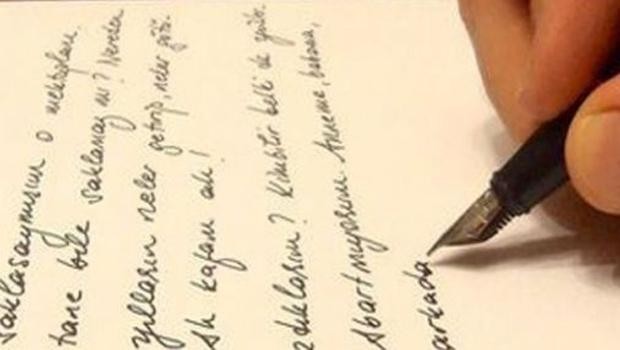 saklasaymışım o mektupları.
tane bile saklamaz mı? Nereden
yılların neler getirip, neler götü
Ah kafam ah!
zdıklarım? Kimbilir belki de yırtıp
Abartmıyorum. Anneme, babama,
arkada